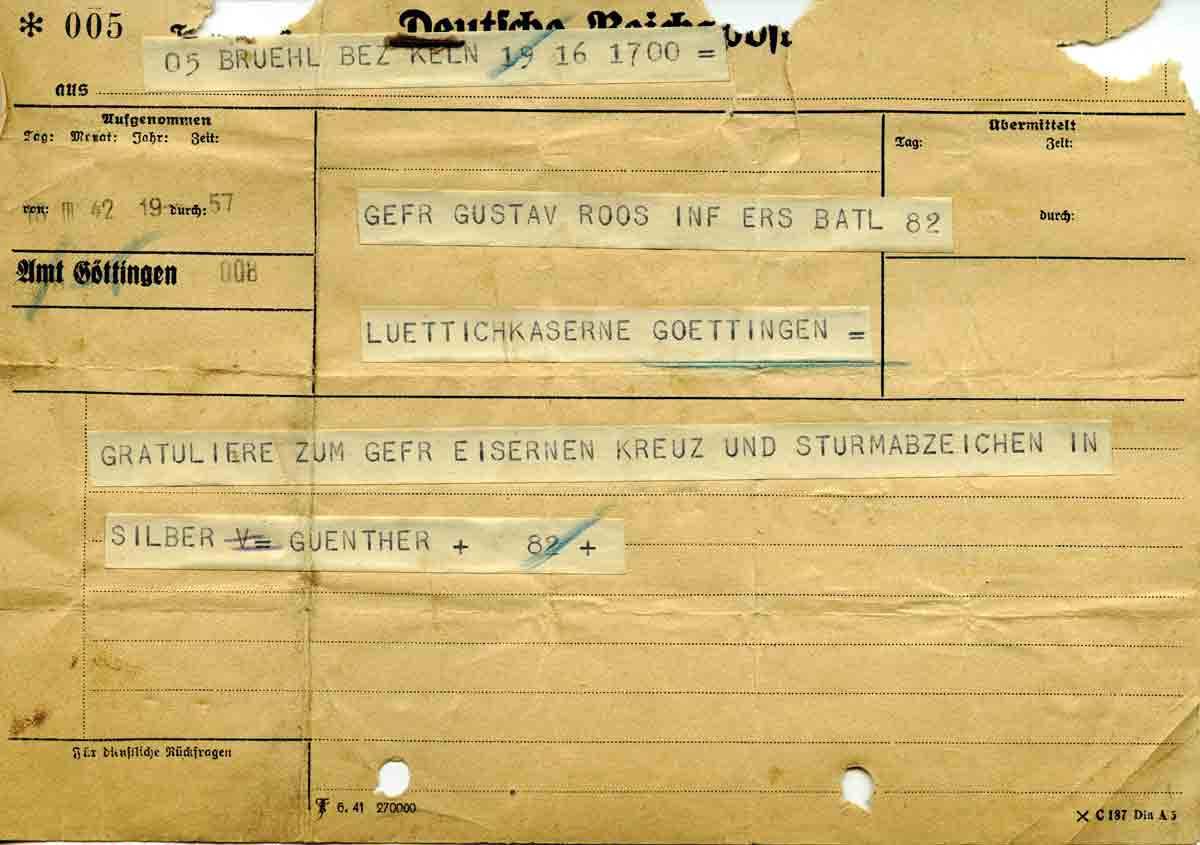 * 005
Deutsche Reichspost
05 BRUEHL BEZ KELN 19 16 1700 =
aus
Aufgenommen
Tag: Monat: Jahr: Zeit:
Übermittelt
Tag: Zeit:
von: III 42 19 durch: 57
durch:
GEFR GUSTAV ROOS INF ERS BATL 82
Amt Göttingen 008
LUETTICHKASERNE GOETTINGEN =
GRATULIERE ZUM GEFR EISERNEN KREUZ UND STURMABZEICHEN IN
SILBER V= GUENTHER + 82 +
Für dienstliche Rückfragen
6. 41 270000
C 187 Din A 5